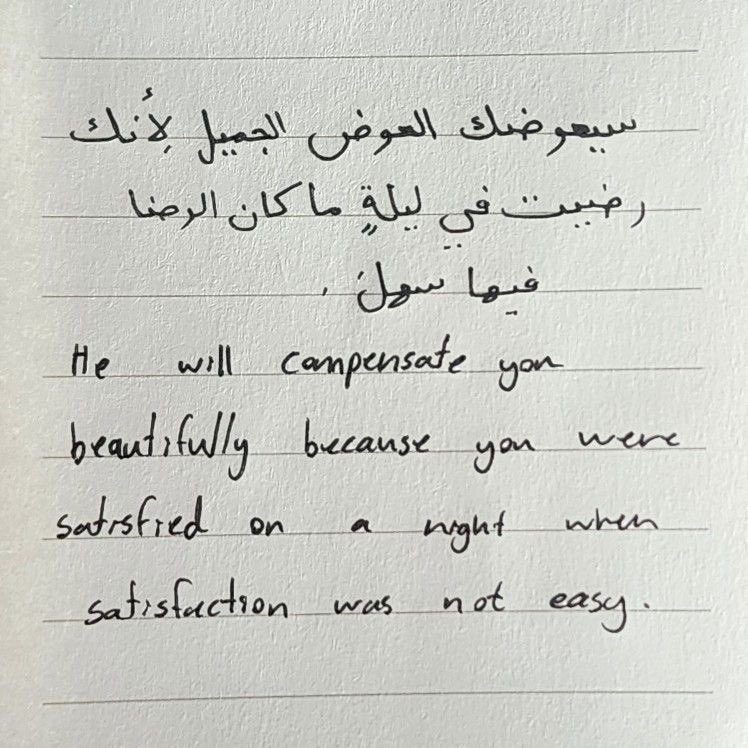 سيعوضك العوض الجميل لأنك
رضيت في ليلةٍ ما كان الرضا
فيها سهل .
He will compensate you
beautifully because you were
satisfied on a night when
satisfaction was not easy.